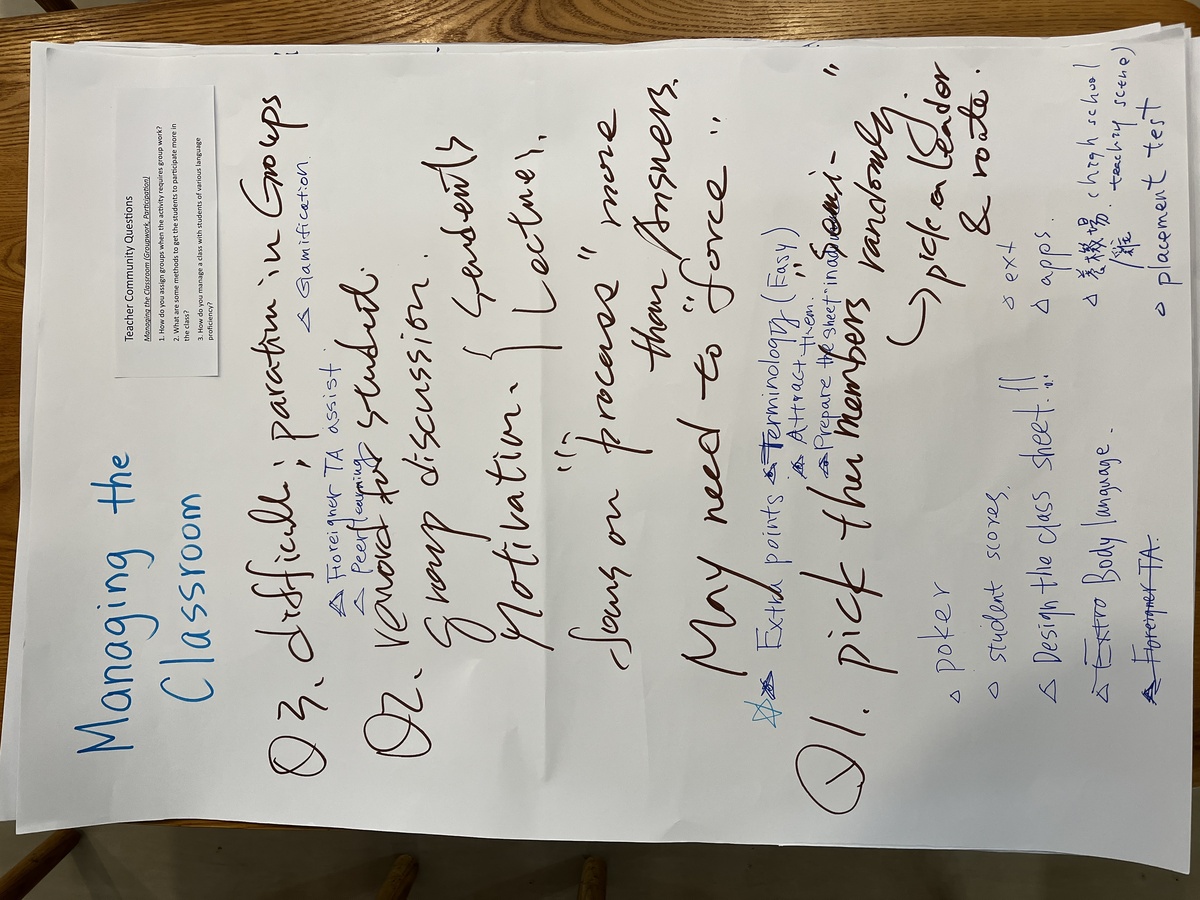 Managing the
Classroom
Teacher Community Questions
Managing the Classroom (Groupwork, Participation)
1. How do you assign groups when the activity requires group work?
2. What are some methods to get the students to participate more in
the class?
3. How do you manage a class with students of various language
proficiency?
Q3. difficult; paration in Groups
△ Foreigner TA assist.
△ Gamification.
△ Peer learning
Q2. reward for student.
group discussion.
Motivation. { students
Lectures.
focus on "process" more
than Answers.
May need to "force"
☆ Extra points
△ Terminology (Easy)
△ Attract them.
△ Prepare the sheet in
Q1. pick the members "semi-"
randomly.
→ pick a leader
& rotate.
△ poker
△ student scores.
△ Design the class sheet!!
△ Extro Body language.
△ Foreigner TA.
△ ext
△ apps.
△ 機場. (high school
teaching scene)
△ placement test